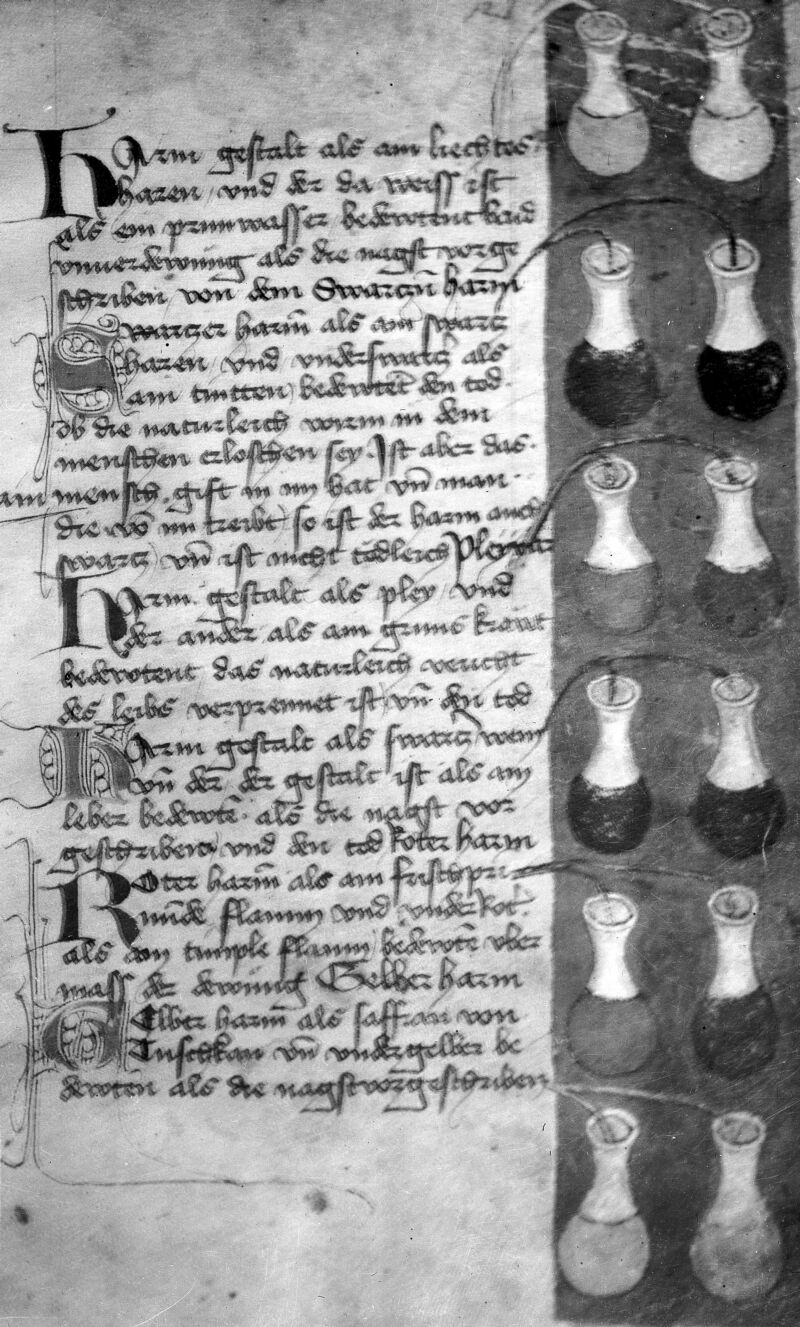 Harm gestalt als am liechtes
haren / und der da weiss ist
als ein prunwasser bedewtent baid
unuerdewung als die nagst vorge
schriben von dem Swartzn̄ harm
Swartzer harm̄ als am swartz
haren / und underswartz als
am tintten / bedewtet den tod
ob die naturleich wirm in dem
menschen erloschen sey. Ist aber das
am mensch gift in im hat vn̄ man
die vō im treibt / so ist der harm auch
swartz / vn̄ ist nicht tödleich Pleyvar
Harm gestalt als pley / und
der ander als am gruns krawt
bedewtent das naturleich vericht
des leibs verprennet ist / vn̄ den tod
Harm gestalt als swartz wein
vn̄ der der gestalt ist als am
leber bedewtē als die nagst vor
geschriben / und den tod Roter harm
Roter harm̄ als am frisch pri
nnūde flamm und under Rot
als am timple flamm / bedewtē uber
mass der dewung Gelber harm
Gelber harm̄ als saffran von
Tuschkan vn̄ undergelber be
dewten als die nagst vorgeschriben